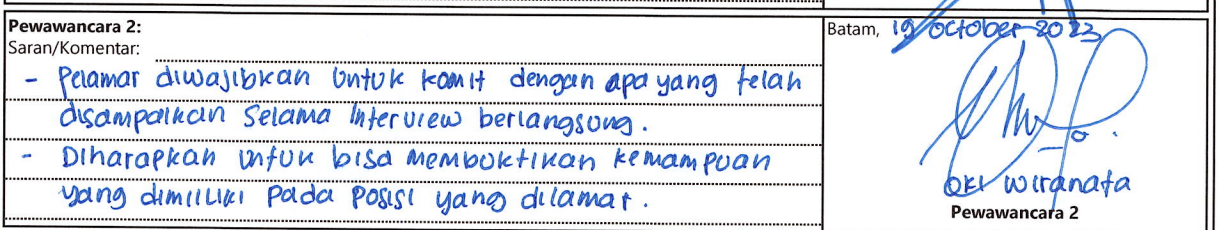 Pewawancara 2:
Saran/Komentar:
- Pelamar diwajibkan untuk komit dengan apa yang telah
disampaikan selama interview berlangsung.
- Diharapkan untuk bisa membuktikan kemampuan
yang dimiliki pada posisi yang dilamar.
Batam, 19 October 2023
OKI WIRANATA
Pewawancara 2